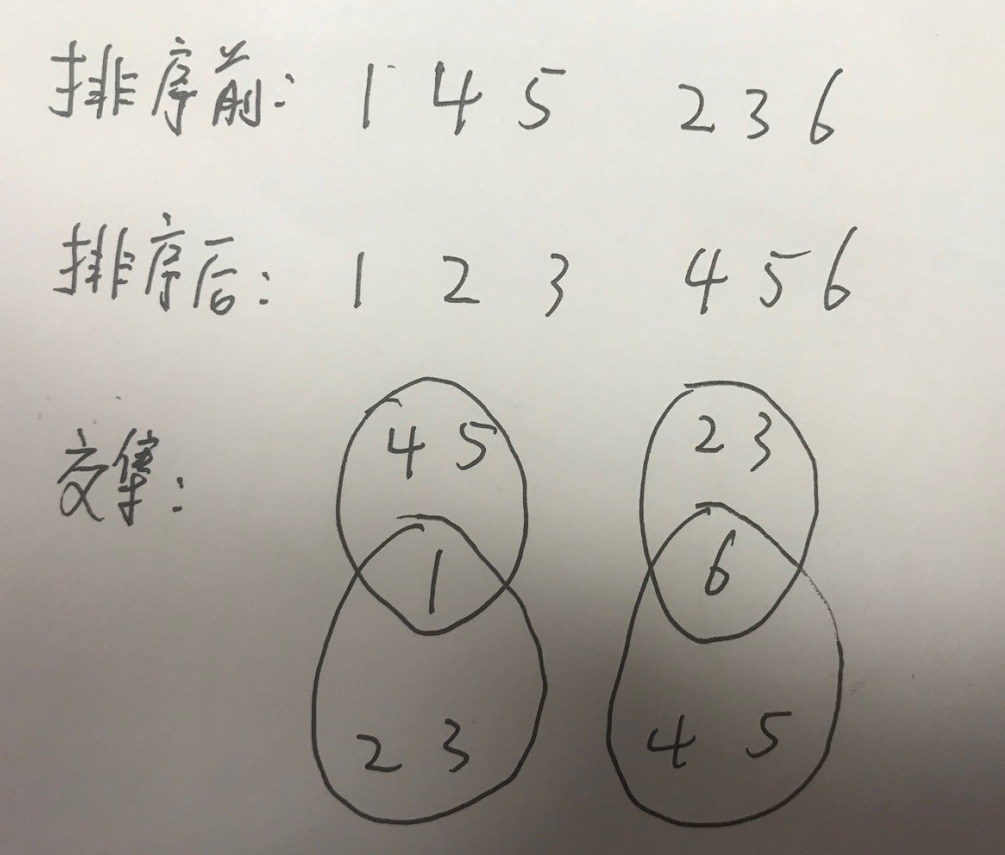 排序前: 1 4 5 2 3 6
排序后: 1 2 3 4 5 6
交集:
4 5 2 3
1 6
2 3 4 5